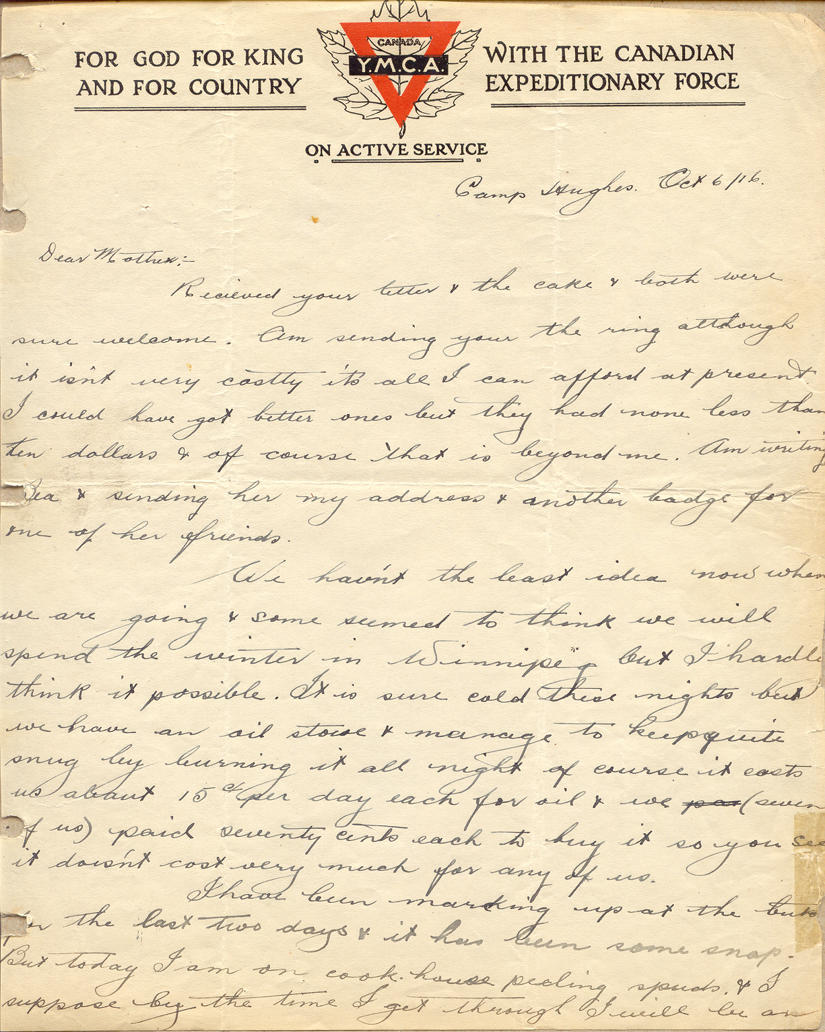 FOR GOD FOR KING
AND FOR COUNTRY
CANADA
Y.M.C.A.
WITH THE CANADIAN
EXPEDITIONARY FORCE
ON ACTIVE SERVICE
Camp Hughes. Oct 6/16.
Dear Mother:-
Recieved your letter & the cake & both were
sure welcome. Am sending your the ring although
it isn't very costly it's all I can afford at present.
I could have got better ones but they had none less than
ten dollars & of course that is beyond me. Am writing
Bea & sending her my address & another badge for
one of her friends.
We hav'nt the least idea now when
we are going & some seemed to think we will
spend the winter in Winnipeg but I hardly
think it possible. It is sure cold these nights but
we have an oil stove & manage to keep quite
snug by burning it all night of course it costs
us about 15¢ per day each for oil & we (seven
of us) paid seventy cents each to buy it so you see
it doesn't cost very much for any of us.
I have been marking up at the buts
for the last two days & it has been some snap.
But today I am on cook-house peeling spuds. & I
suppose by the time I get through I will be an